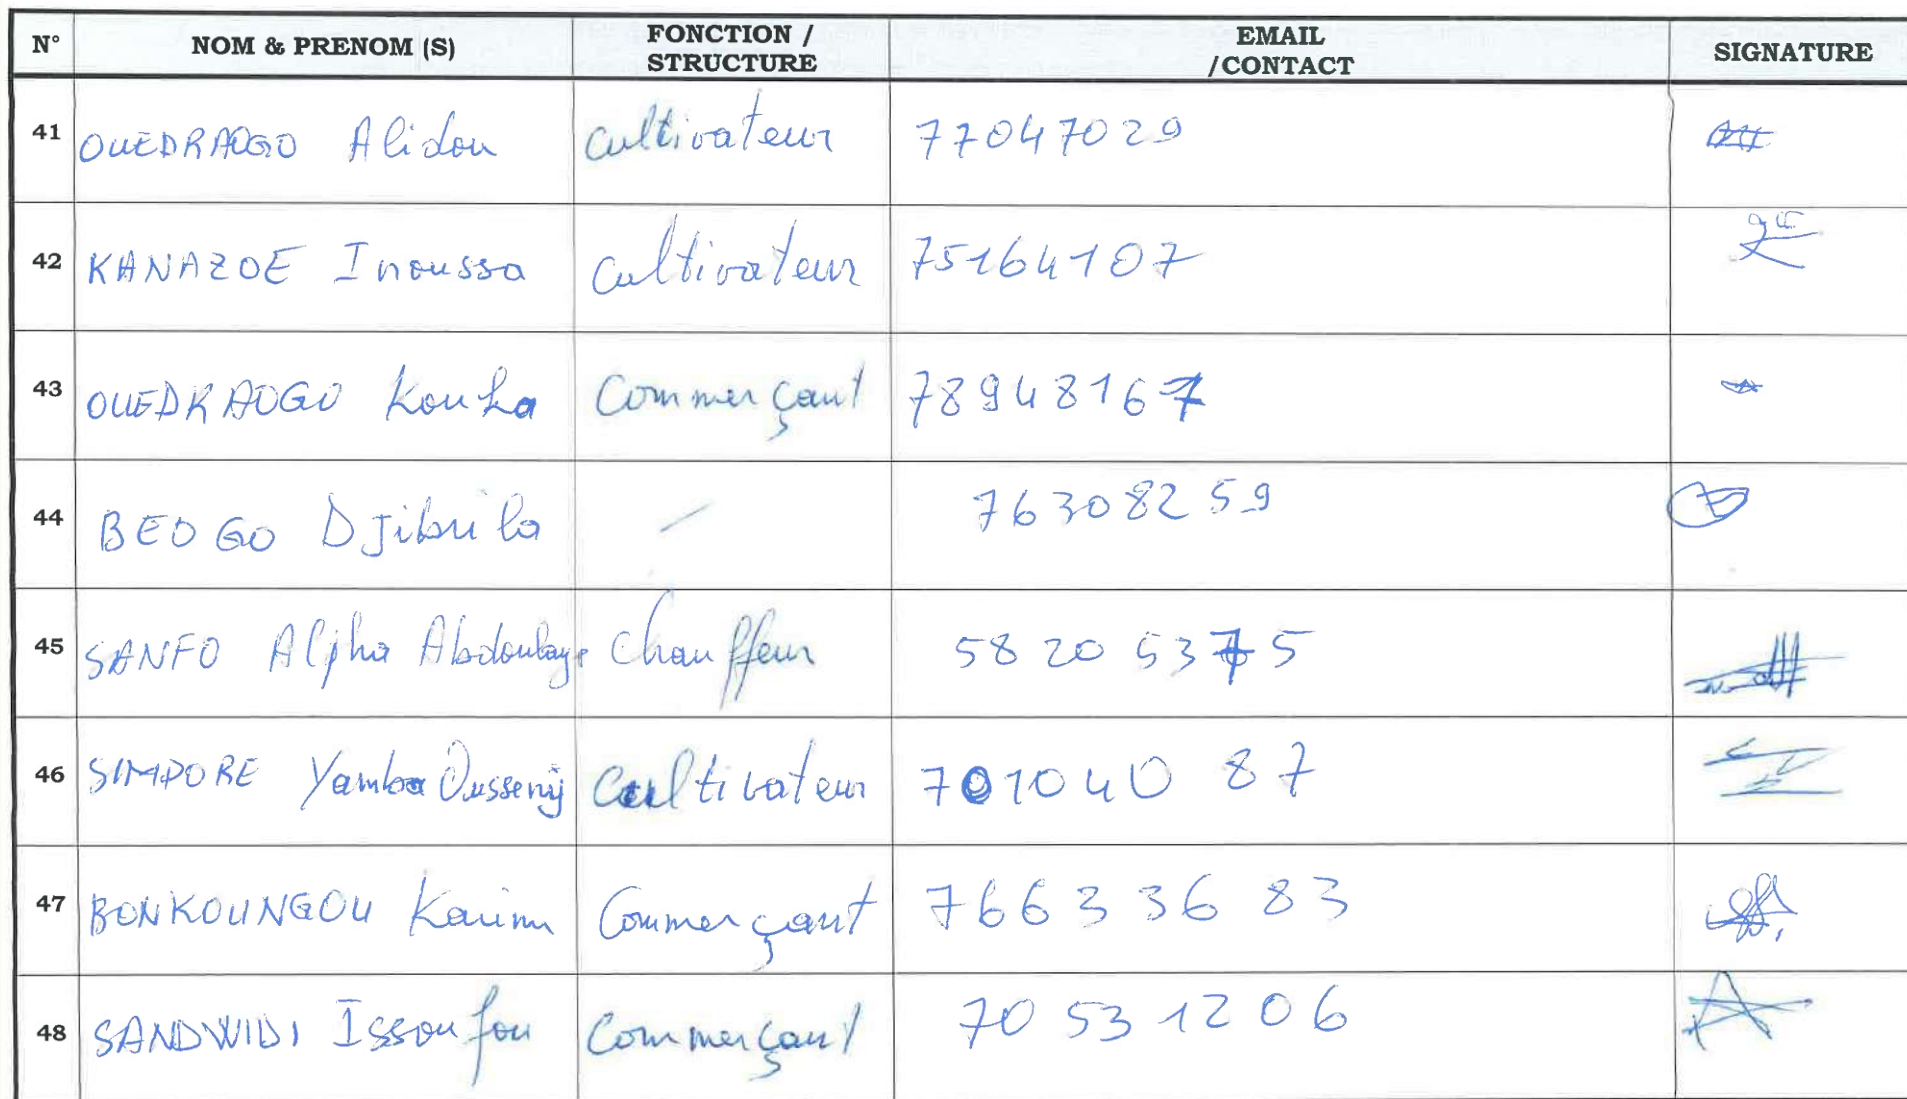 N° NOM & PRENOM (S) FONCTION / STRUCTURE EMAIL /CONTACT SIGNATURE
41 OUEDRAOGO Alidou cultivateur 77047029
42 KANAZOE Inoussa cultivateur 75164107
43 OUEDRAOGO Kouka Commerçant 78948167
44 BEOGO Djibrila / 76308259
45 SANFO Alpha Abdoulaye Chauffeur 58 20 53 75
46 SIMPORE Yamba Ousseny Cultivateur 701040 87
47 BONKOUNGOU Karim Commerçant 766336 83
48 SANDWIDI Issoufou Commerçant 70 53 12 06